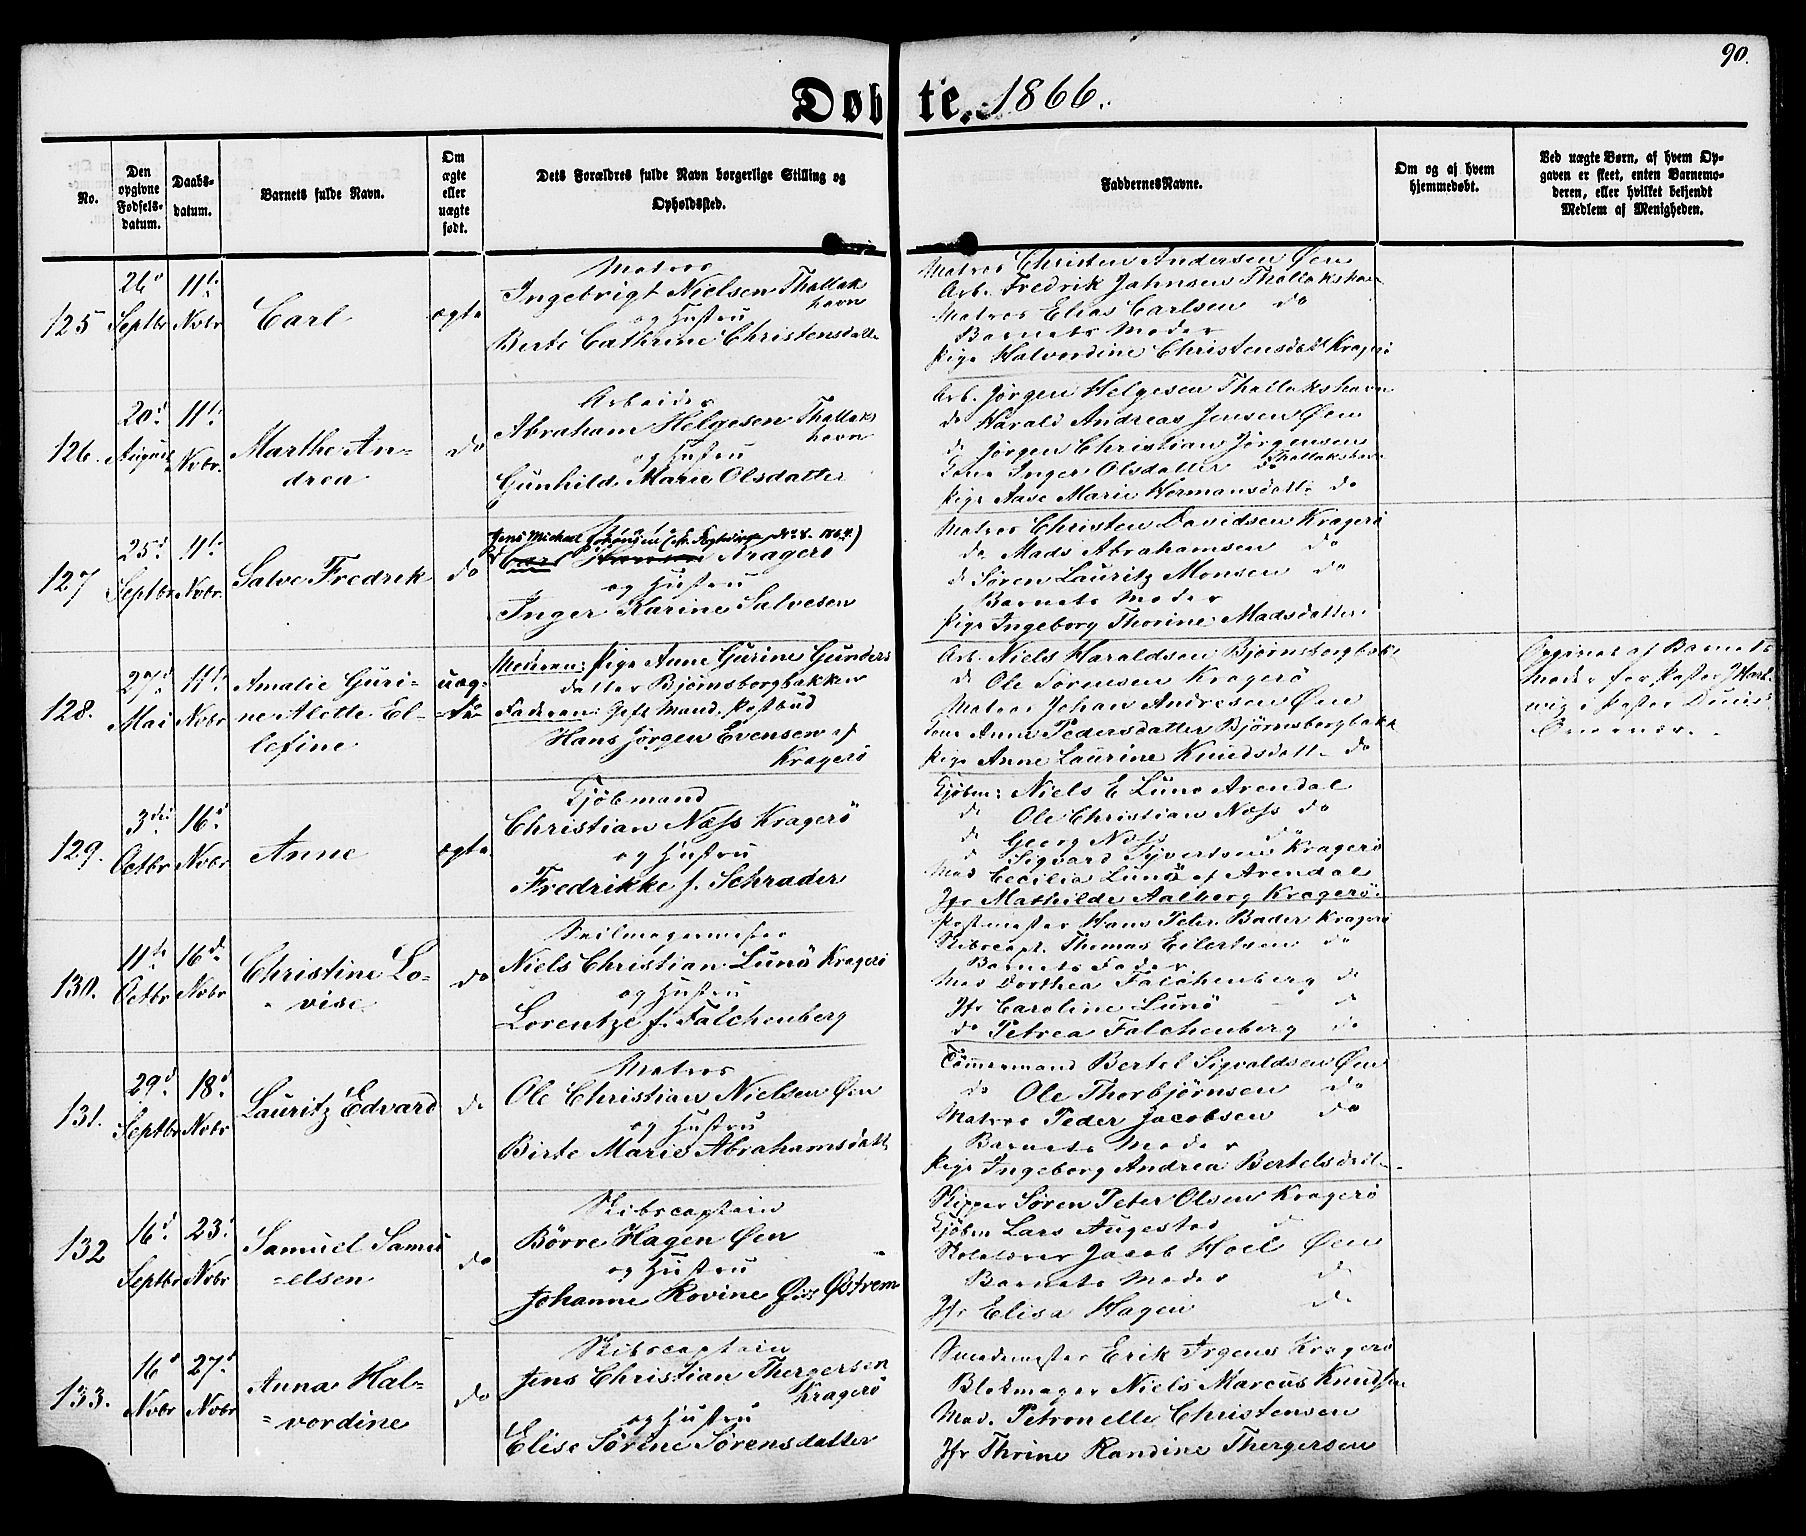 90.
Døbte. 1866.
No.
Den opgivne Fødsels-datum.
Daabs-datum.
Barnets fulde Navn.
Om ægte eller uægte født.
Dets Forældres fulde Navn borgerlige Stilling og Opholdssted.
Faddernes Navne.
Om og af hvem hjemmedøbt.
Ved uægte Børn, af hvem Opgaven er skeet, enten Barnemoderen, eller hvilket bekjendt Medlem af Menigheden.
125
26d Septbr
11te Novbr
Carl
ægte
Matros
Ingebrigt Nielsen Thallak
havn
og Hustru
Berte Cathrine Christensdatte
Matros Christen Andersen Øen
Arb. Fredrik Jahnsen Thallakshavn
Matros Elias Carlsen do
Barnets Moder
Pige Halvordine Christensdatt Kragerö
126.
20d August
11te Novbr.
Marthe An-
drea
do
Arbeider
Abraham Helgesen Thallaks
havn
og Hustru
Gunhild Marie Olsdatter
Arb. Jørgen Helgesen Thallakshavn
do Harald Andreas Jensen Øen
do Jørgen Christian Jörgensen
Kone Inger Olsdatter Thallakshavn
Pige Aase Marie Hermansdatte do
127
25d Septbr
11te Novbr.
Salve Fredrik
do
Jens Michael
Kragerö
og Hustru
Inger Karine Salvesen
Matros Christen Davidsen Kragerö
do Mads Abrahamsen do
do Søren Lauritz Monsen do
Barnets Moder
Pige Ingeborg Thorine Madsdatter
128.
27d Mai
11te Novbr
Amalie Guri-
ne Alette El-
lefine
uæg-
te
Moderen: Pige Anne Gurine Gunders
datter Bjørnsborgbakken
Faderen: Gift Mand. Postbud
Hans Jørgen Evensen af
Kragerö
Arb. Niels Haraldsen Bjørnsborgbak
do Ole Sørensen Kragerö
Matros Johan Andresen Øen
Kone Anne Pedersdatter Bjørnsborgbakk
Pige Anne Laurine Knudsdatte do
Opgivet af Barnets
Moder for Pastor Hart
wig i Pastor
129.
3die Octbr
16d Novbr
Anne
ægte
Kjöbmand
Christian Næss Kragerö
og Hustru
Fredrikke f. Schrader
Kjöbm: Niels E Lunø Arendal
do Ole Christian Næss do
do Georg Næss do
do Sigvard Syvertsen Kragerö
Mad Cecilia Lunö af Arendal
Jfr Mathilde Aalborg Kragerö
130.
11te Octbr
16de Novbr
Christine Lo-
vise
do
Seilmagermester
Niels Christian Lunö Kragerö
og Hustru
Lorentze f. Falchenberg
Postmester Hans Peter Bader Kragerö
Skibscapt. Thomas Eilertsen do
Barnets Fader
Mad Dorthea Falchenberg do
Jfr Caroline Lunö do
do Petrea Falchenberg do
131.
29d Septbr
18d Novbr
Lauritz Edvard
do
Matros
Ole Christian Nielsen Øen
og Hustru
Birte Marie Abrahamsdatt
Tömmermand Bertel Sigvaldsen Øen
do Ole Thorbjörnsen do
Matros Peder Jacobsen do
Barnets Moder
Pige Ingeborg Andrea Bertelsdatter
132
16d Septbr
23d Novbr
Samuel Samu
-elsen
do
Skibscaptain
Börre Hagen Øen
og Hustru
Johanne Rovine Østrem
Skipper Søren Peter Olsen Kragerö
Kjöbm Lars Augestad do
Skolelærer Jacob Hoel Øen
Barnets Moder do
Jfr Elisa Hagen do
133.
16d Novbr
27d Novbr
Anna Hal-
vordine
do
Skibscaptain
Jens Christian Thergersen
Kragerö
og Hustru
Elise Sörine Sørensdatter
Smedemester Erik Irgens Kragerö
Blokmager Niels Marcus Knudsen
Mad. Petronelle Christensen
Jfr Thrine Randine Thergersen